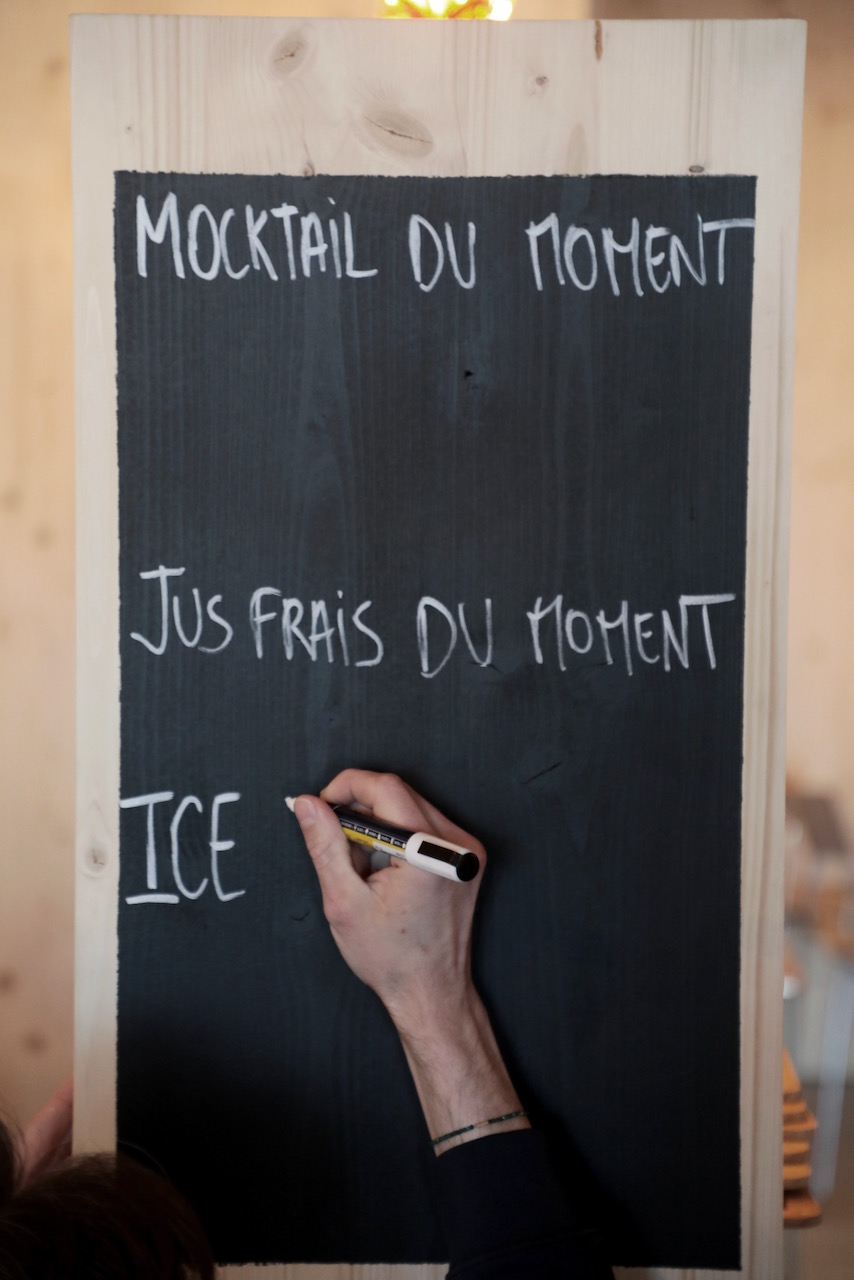 MOCKTAIL DU MOMENT
JUS FRAIS DU MOMENT
ICE